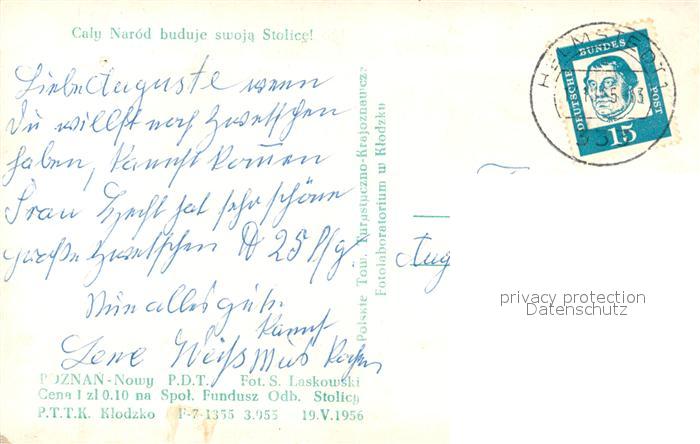 Cały Naród buduje swoją Stolicę!
Liebe Auguste wenn
Du willst noch Zwetschen
haben, kannst kommen
Frau Hecht hat sehr schöne
große Zwetschen 25 Pfg.
Nun alles gute
kannst
Lene Weiß Mus kochen
Polskie Tow. Turystyczno-Krajoznawcze
Fotolaboratorium w Kłodzku
POZNAŃ-Nowy P.D.T. Fot. S. Laskowski
Cena 1 zł 0.10 na Społ. Fundusz Odb. Stolicy
P.T.T.K. Kłodzko F-7-1355 3.955 19.V.1956
HELMSTEDT 1
DEUTSCHE BUNDESPOST
15
Aug
privacy protection
Datenschutz